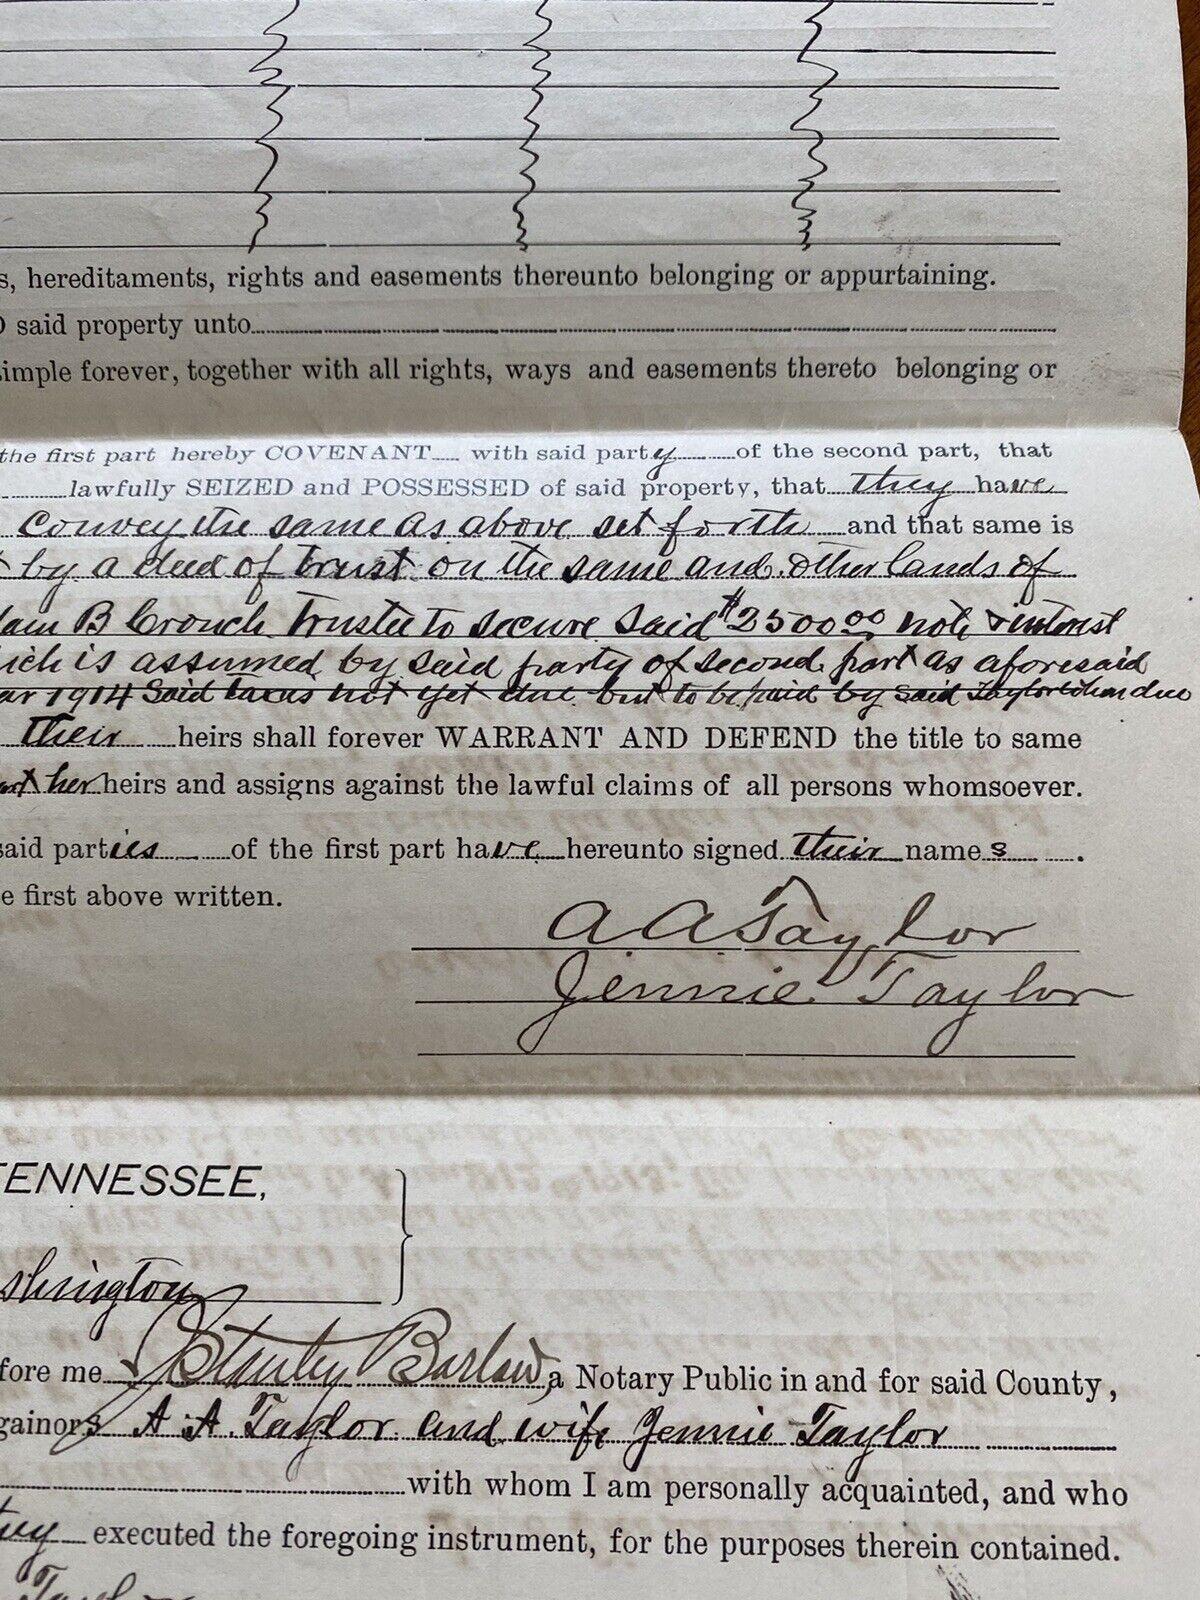 s, hereditaments, rights and easements thereunto belonging or appurtaining.
said property unto
simple forever, together with all rights, ways and easements thereto belonging or
the first part hereby COVENANT with said party of the second part, that
lawfully SEIZED and POSSESSED of said property, that they have
Convey the same as above set forth and that same is
by a deed of trust on the same and other lands of
B Crouch Trustee to secure said $2500.00 note & interest
is assumed by said party of second part as aforesaid
1914 Said taxes not yet due but to be paid by said Taylor when due
their heirs shall forever WARRANT AND DEFEND the title to same
her heirs and assigns against the lawful claims of all persons whomsoever.
said parties of the first part have hereunto signed their names.
e first above written.
A A Taylor
Jennie Taylor
TENNESSEE,
shington
fore me Stanley Barlow, a Notary Public in and for said County,
gainors A A. Taylor and wife Jennie Taylor
with whom I am personally acquainted, and who
executed the foregoing instrument, for the purposes therein contained.
Taylor